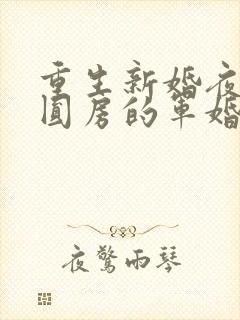 重生新婚夜
圆房的军婚
夜驚雨琴